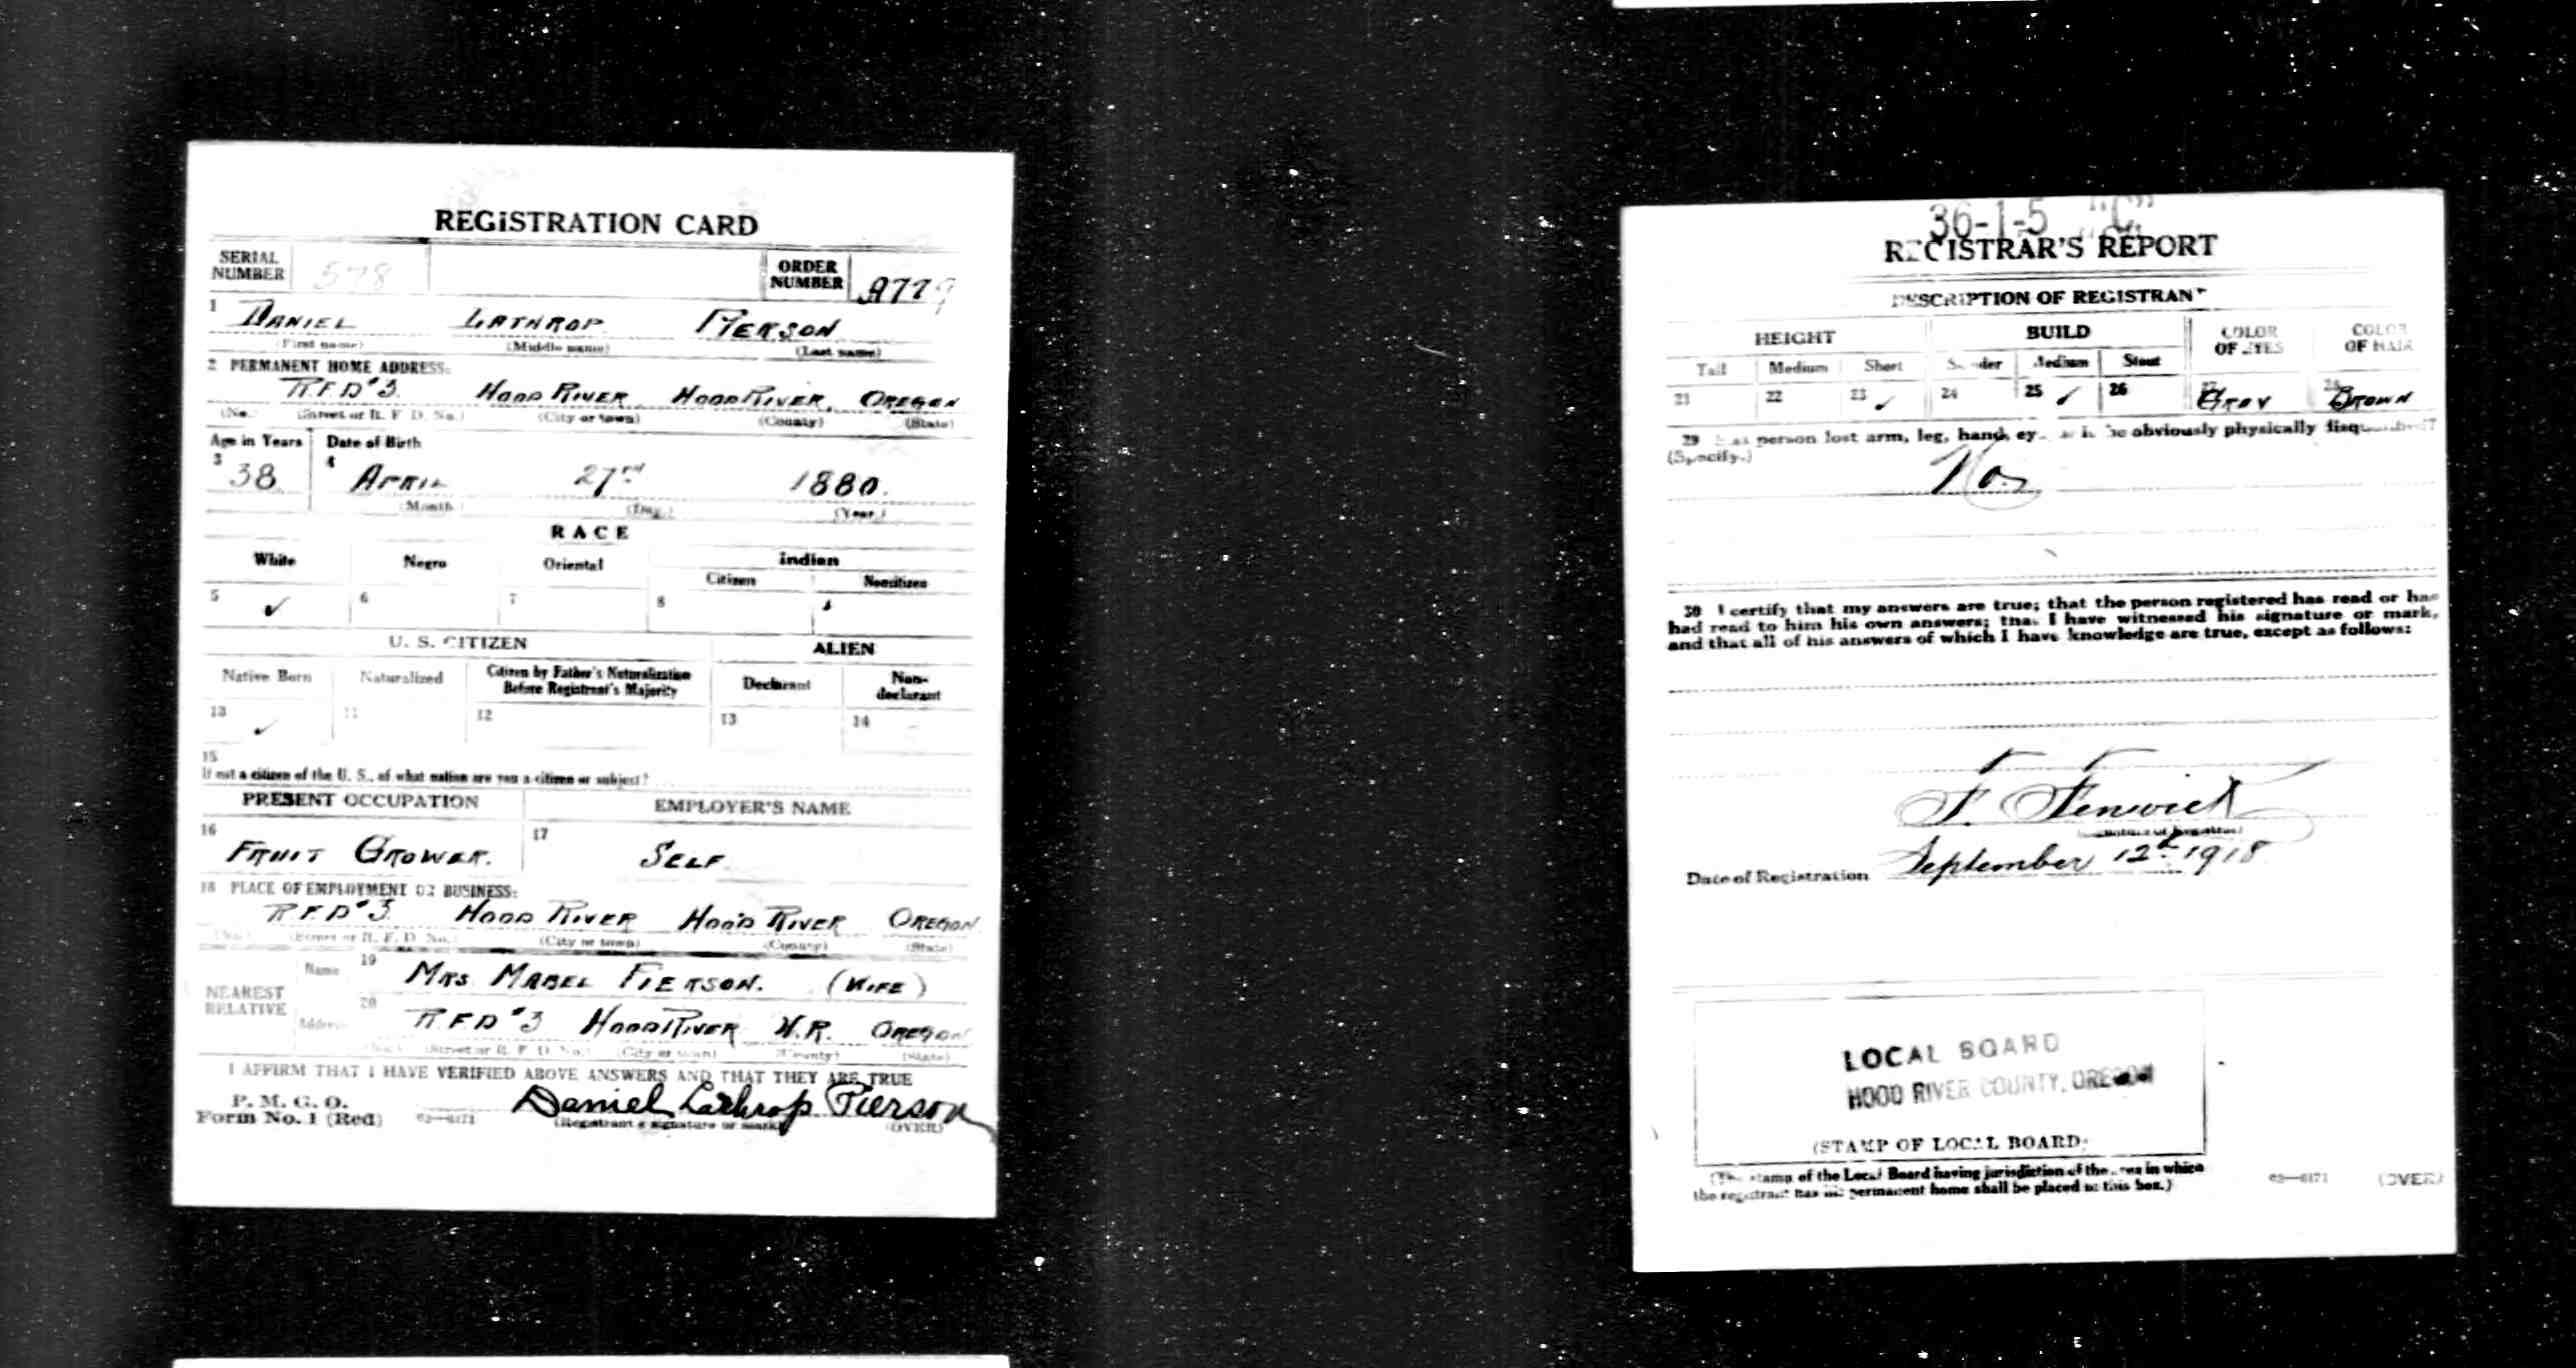 REGISTRATION CARD
SERIAL NUMBER 578 ORDER NUMBER
1 DANIEL LATHROP PIERSON
(First name) (Middle name) (Last name)
2 PERMANENT HOME ADDRESS:
R.F.D #3 HOOD RIVER HOOD RIVER OREGON
(No.) (Street or R. F. D. No.) (City or town) (County) (State)
Age in Years Date of Birth
3 38 4 APRIL 27 1880.
(Month) (Day) (Year)
RACE
White Negro Oriental Indian
Citizen Noncitizen
5 ✓ 6 7 8
U. S. CITIZEN ALIEN
Native Born Naturalized Citizen by Father's Naturalization Before Registrant's Majority Declarant Non-declarant
10 ✓ 11 12 13 14
15
If not a citizen of the U. S., of what nation are you a citizen or subject?
PRESENT OCCUPATION EMPLOYER'S NAME
16 FRUIT GROWER. 17 SELF.
18 PLACE OF EMPLOYMENT OR BUSINESS:
R.F.D #3 HOOD RIVER HOOD RIVER OREGON
(No.) (Street or R. F. D. No.) (City or town) (County) (State)
NEAREST RELATIVE
Name 19 MRS MABEL PIERSON. (WIFE)
Address 20 R.F.D #3 HOOD RIVER H.R. OREGON
(No.) (Street or R. F. D. No.) (City or town) (County) (State)
I AFFIRM THAT I HAVE VERIFIED ABOVE ANSWERS AND THAT THEY ARE TRUE
P. M. G. O.
Form No. 1 (Red) 03—6171 Daniel Lathrop Pierson
(Registrant's signature or mark) (OVER)
36-1-5 "C"
REGISTRAR'S REPORT
DESCRIPTION OF REGISTRANT
HEIGHT BUILD COLOR OF EYES COLOR OF HAIR
Tall Medium Short Slender Medium Stout
21 22 23 ✓ 24 25 ✓ 26 27 GREY 28 BROWN
29 Has person lost arm, leg, hand, eye, or is he obviously physically disqualified?
(Specify.)
No.
30 I certify that my answers are true; that the person registered has read or has
had read to him his own answers; that I have witnessed his signature or mark,
and that all of his answers of which I have knowledge are true, except as follows:
F. Fenwick
(Signature of Registrar)
Date of Registration September 12th 1918
LOCAL BOARD
HOOD RIVER COUNTY, OREGON
(STAMP OF LOCAL BOARD)
(The stamp of the Local Board having jurisdiction of the area in which
the registrant has his permanent home shall be placed in this box.)
03—6171 (OVER)